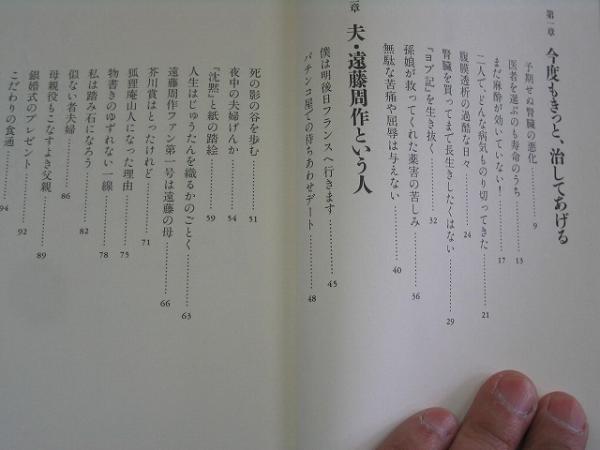 第一章 今度もきっと、治してあげる
予期せぬ腎臓の悪化………9
医者を選ぶのも寿命のうち………13
まだ麻酔が効いていない！………17
二人で、どんな病気ものり切ってきた………21
腹膜透析の過酷な日々………24
腎臓を買ってまで長生きしたくはない………29
『ヨブ記』を生き抜く………32
孫娘が救ってくれた薬害の苦しみ………36
無駄な苦痛や屈辱は与えない………40
章 夫・遠藤周作という人
僕は明後日フランスへ行きます………45
パチンコ屋での待ちあわせデート………48
死の影の谷を歩む………51
夜中の夫婦げんか………54
『沈黙』と紙の踏絵………59
人生はじゅうたんを織るかのごとく………63
遠藤周作ファン第一号は遠藤の母………66
芥川賞はとったけれど………71
狐狸庵山人になった理由………75
物書きのゆずれない一線………78
私は踏み石になろう………82
似ない者夫婦………86
母親役もこなすよき父親………89
銀婚式のプレゼント………92
こだわりの食通………94